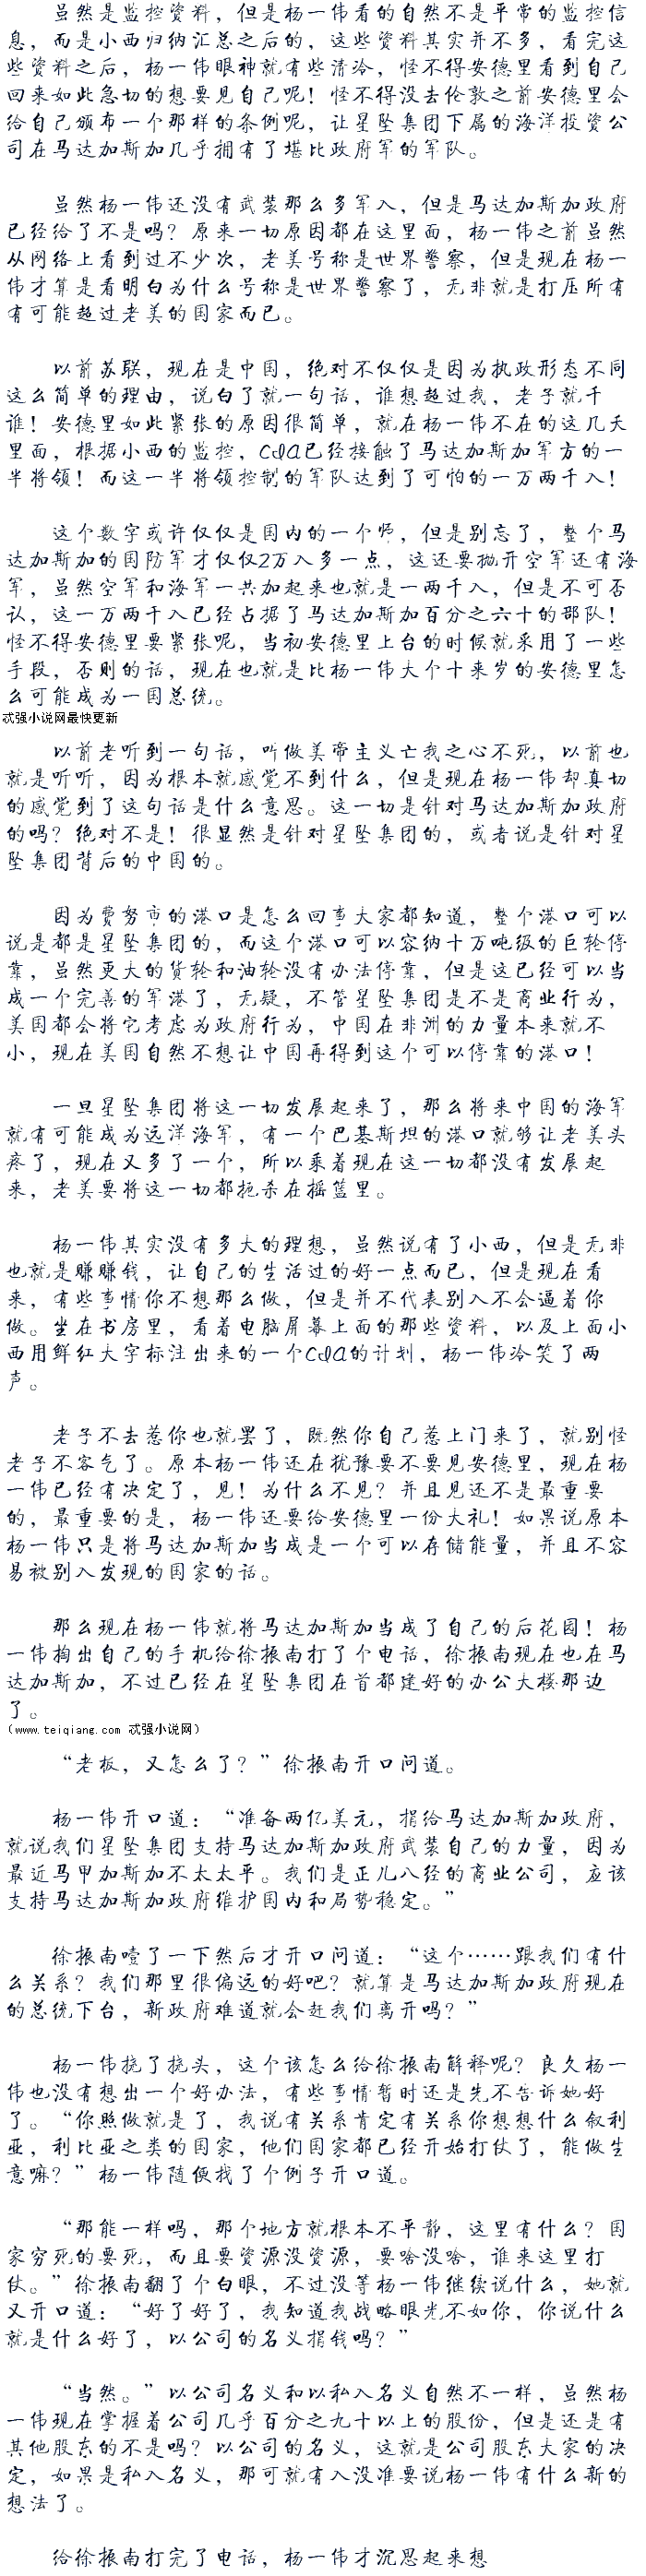 虽然是监控资料，但是杨一伟看的自然不是平常的监控信
息，而是小西归纳汇总之后的，这些资料其实并不多，看完这
些资料之后，杨一伟眼神就有些清冷，怪不得安德里看到自己
回来如此急切的想要见自己呢！怪不得没去伦敦之前安德里会
给自己颁布一个那样的条例呢，让星坠集团下属的海洋投资公
司在马达加斯加几乎拥有了堪比政府军的军队。
虽然杨一伟还没有武装那么多军人，但是马达加斯加政府
已经给了不是吗？原来一切原因都在这里面，杨一伟之前虽然
从网络上看到过不少次，老美号称是世界警察，但是现在杨一
伟才算是看明白为什么号称是世界警察了，无非就是打压所有
有可能超过老美的国家而已。
以前苏联，现在是中国，绝对不仅仅是因为执政形态不同
这么简单的理由，说白了就一句话，谁想超过我，老子就干
谁！安德里如此紧张的原因很简单，就在杨一伟不在的这几天
里面，根据小西的监控，CIA已经接触了马达加斯加军方的一
半将领！而这一半将领控制的军队达到了可怕的一万两千人！
这个数字或许仅仅是国内的一个师，但是别忘了，整个马
达加斯加的国防军才仅仅2万人多一点，这还要抛开空军还有海
军，虽然空军和海军一共加起来也就是一两千人，但是不可否
认，这一万两千人已经占据了马达加斯加百分之六十的部队！
怪不得安德里要紧张呢，当初安德里上台的时候就采用了一些
手段，否则的话，现在也就是比杨一伟大个十来岁的安德里怎
么可能成为一国总统。
忒强小说网最快更新
以前老听到一句话，叫做美帝主义亡我之心不死，以前也
就是听听，因为根本就感觉不到什么，但是现在杨一伟却真切
的感觉到了这句话是什么意思。这一切是针对马达加斯加政府
的吗？绝对不是！很显然是针对星坠集团的，或者说是针对星
坠集团背后的中国的。
因为费努市的港口是怎么回事大家都知道，整个港口可以
说是都是星坠集团的，而这个港口可以容纳十万吨级的巨轮停
靠，虽然更大的货轮和油轮没有办法停靠，但是这已经可以当
成一个完善的军港了，无疑，不管星坠集团是不是商业行为，
美国都会将它考虑为政府行为，中国在非洲的力量本来就不
小，现在美国自然不想让中国再得到这个可以停靠的港口！
一旦星坠集团将这一切发展起来了，那么将来中国的海军
就有可能成为远洋海军，有一个巴基斯坦的港口就够让老美头
疼了，现在又多了一个，所以乘着现在这一切都没有发展起
来，老美要将这一切都扼杀在摇篮里。
杨一伟其实没有多大的理想，虽然说有了小西，但是无非
也就是赚赚钱，让自己的生活过的好一点而已，但是现在看
来，有些事情你不想那么做，但是并不代表别人不会逼着你
做。坐在书房里，看着电脑屏幕上面的那些资料，以及上面小
西用鲜红大字标注出来的一个CIA的计划，杨一伟冷笑了两
声。
老子不去惹你也就罢了，既然你自己惹上门来了，就别怪
老子不客气了。原本杨一伟还在犹豫要不要见安德里，现在杨
一伟已经有决定了，见！为什么不见？并且见还不是最重要
的，最重要的是，杨一伟还要给安德里一份大礼！如果说原本
杨一伟只是将马达加斯加当成是一个可以存储能量，并且不容
易被别人发现的国家的话。
那么现在杨一伟就将马达加斯加当成了自己的后花园！杨
一伟掏出自己的手机给徐振南打了个电话，徐振南现在也在马
达加斯加，不过已经在星坠集团在首都建好的办公大楼那边
了。
（www.teiqiang.com 忒强小说网）
“老板，又怎么了？”徐振南开口问道。
杨一伟开口道：“准备两亿美元，捐给马达加斯加政府，
就说我们星坠集团支持马达加斯加政府武装自己的力量，因为
最近马甲加斯加不太太平。我们是正儿八经的商业公司，应该
支持马达加斯加政府维护国内和局势稳定。”
徐振南噎了一下然后才开口问道：“这个……跟我们有什
么关系？我们那里很偏远的好吧？就算是马达加斯加政府现在
的总统下台，新政府难道就会赶我们离开吗？”
杨一伟挠了挠头，这个该怎么给徐振南解释呢？良久杨一
伟也没有想出一个好办法，有些事情暂时还是先不告诉她好
了。“你照做就是了，我说有关系肯定有关系你想想什么叙利
亚，利比亚之类的国家，他们国家都已经开始打仗了，能做生
意嘛？”杨一伟随便找了个例子开口道。
“那能一样吗，那个地方就根本不平静，这里有什么？国
家穷死的要死，而且要资源没资源，要啥没啥，谁来这里打
仗。”徐振南翻了个白眼，不过没等杨一伟继续说什么，她就
又开口道：“好了好了，我知道我战略眼光不如你，你说什么
就是什么好了，以公司的名义捐钱吗？”
“当然。”以公司名义和以私人名义自然不一样，虽然杨
一伟现在掌握着公司几乎百分之九十以上的股份，但是还是有
其他股东的不是吗？以公司的名义，这就是公司股东大家的决
定，如果是私人名义，那可就有人没准要说杨一伟有什么新的
想法了。
给徐振南打完了电话，杨一伟才沉思起来想